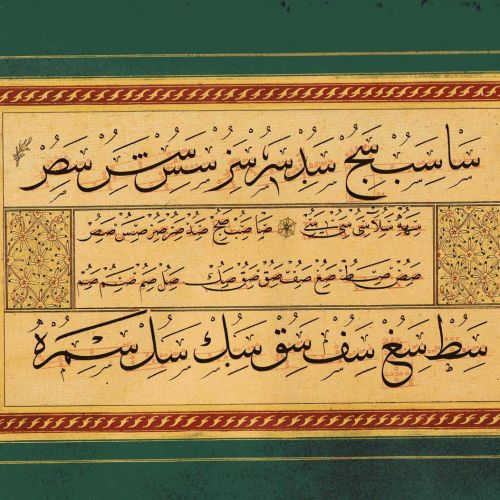 سا سب سج سد سر سز سس سس سص
سلا سى سى صا صب صج صد صر صر صس صص
صط صع صف صق صق صك صل صم صم صم
سط سع سف سق سك سل سم